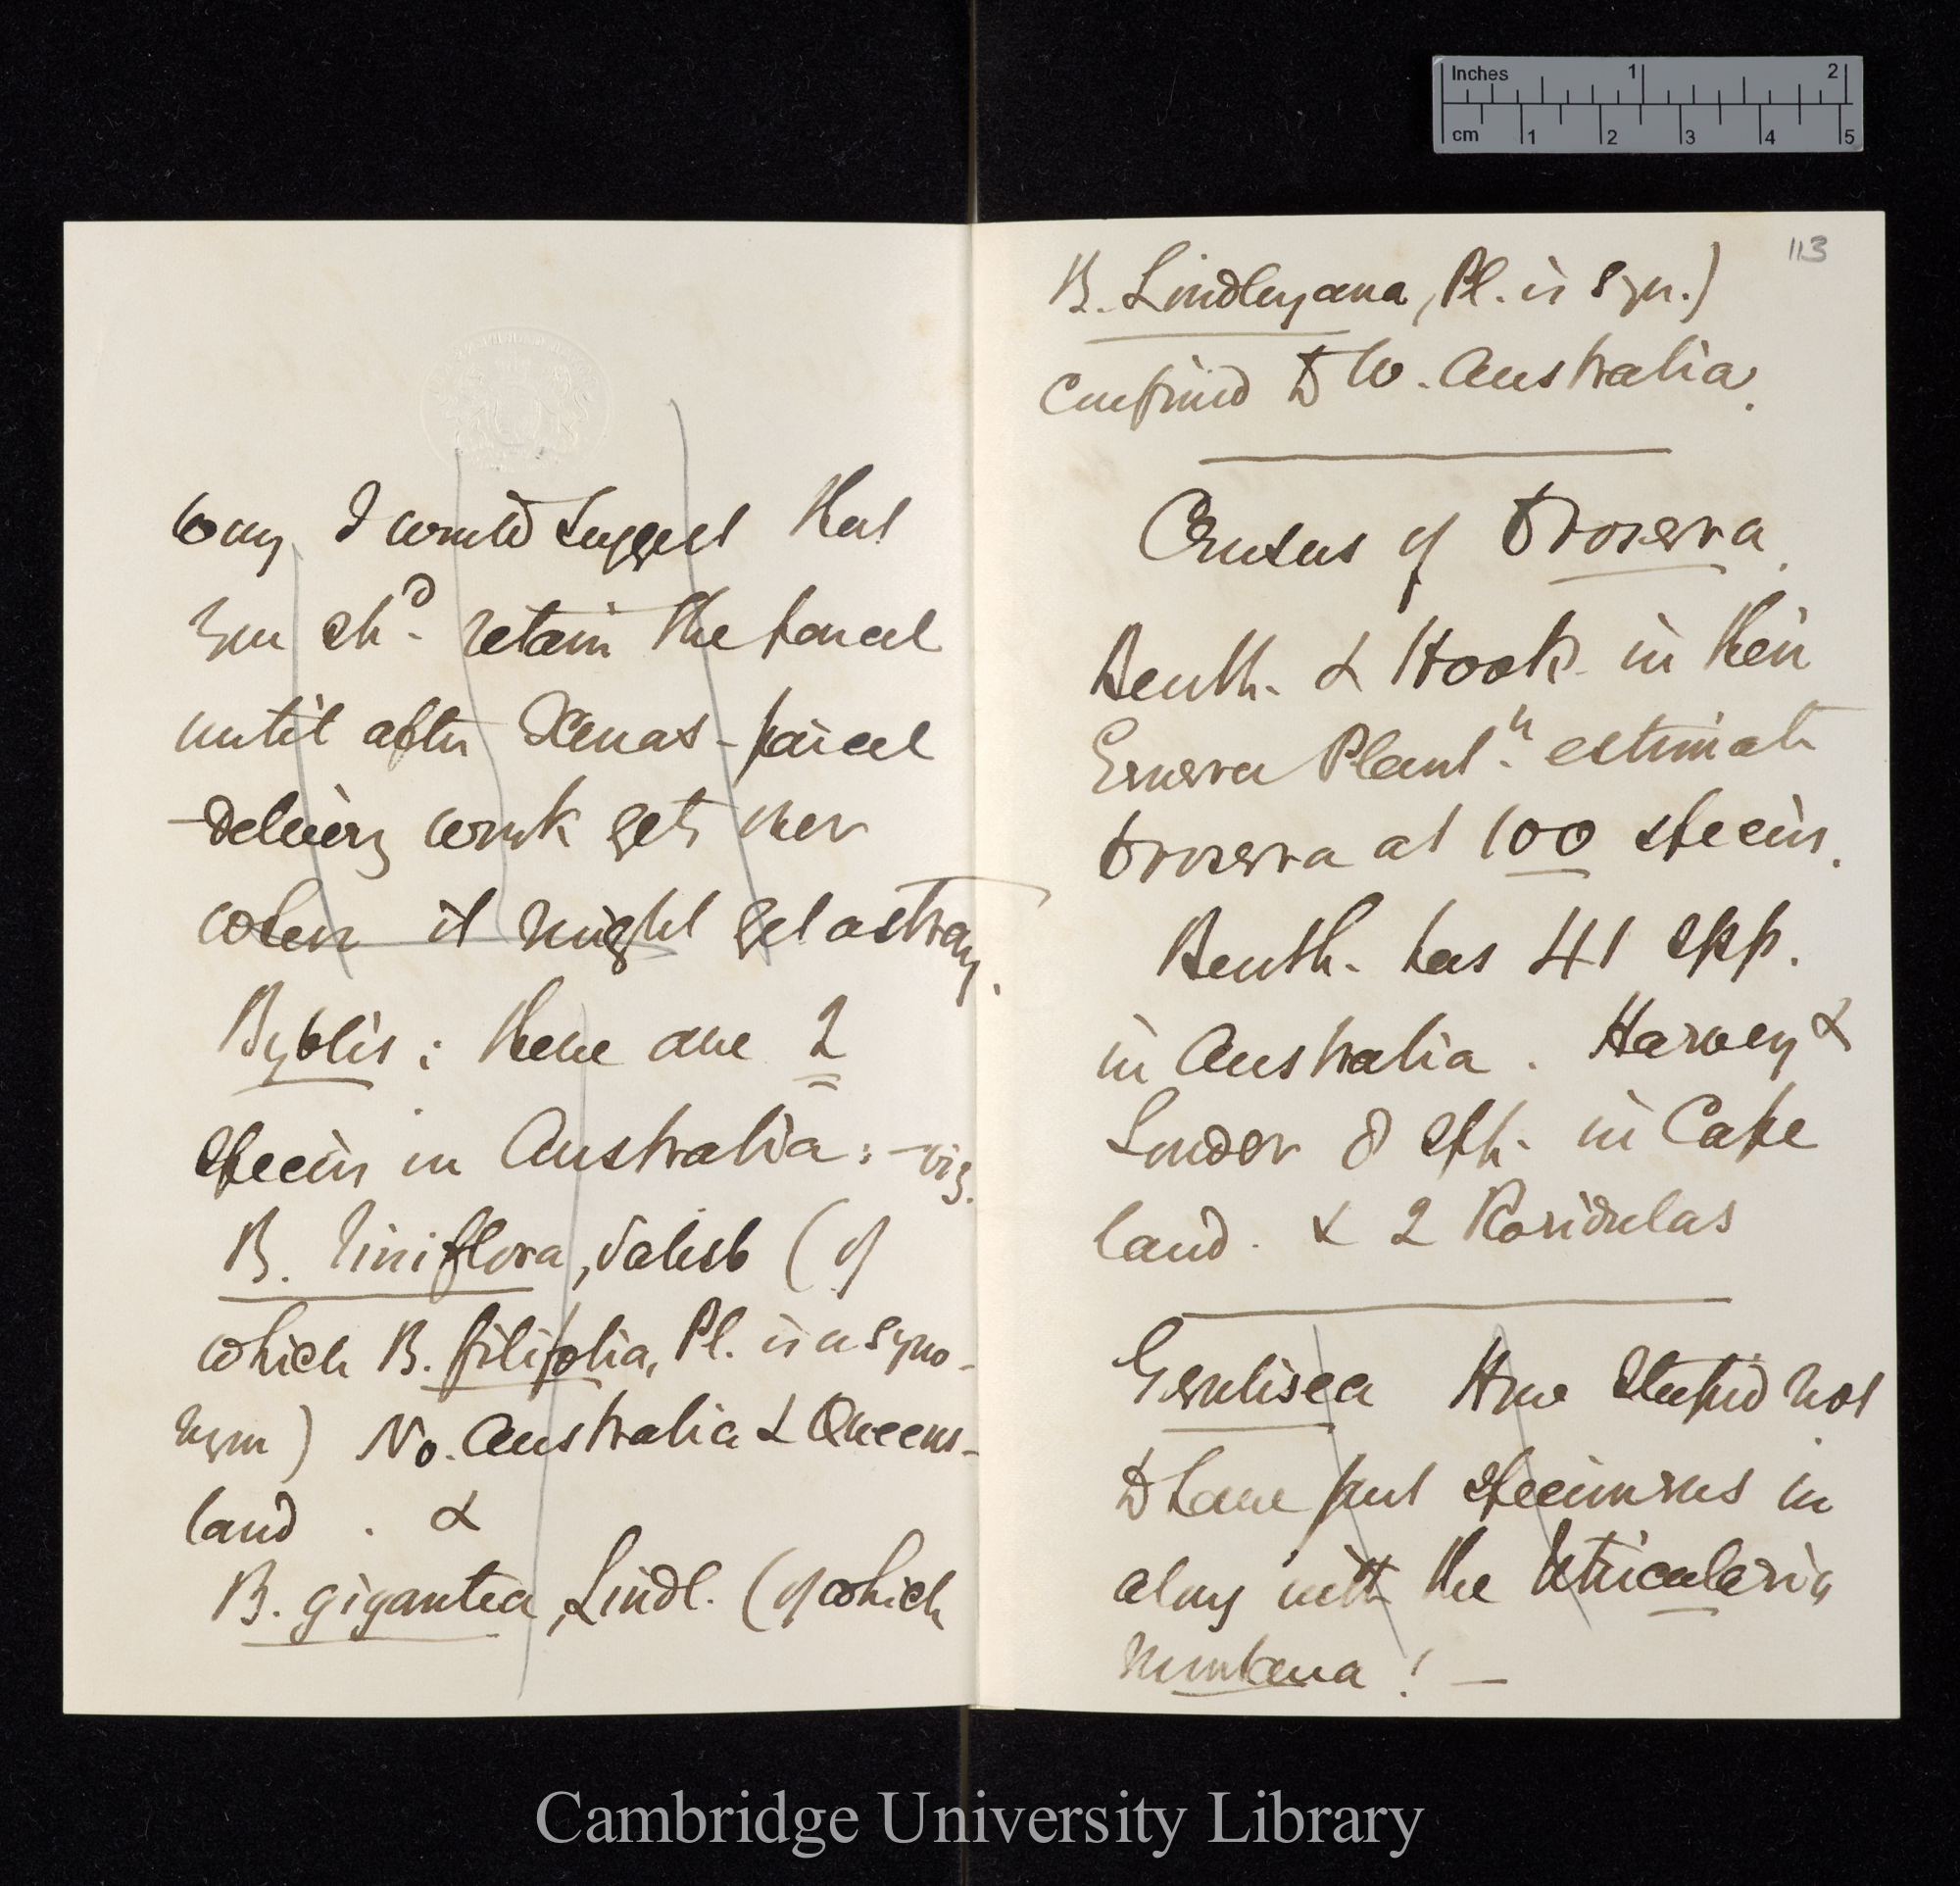 way I would suggest that
you shd. retain the parcel
until after Xmas - parcel
-delivery work gets over
when it might get astray.
Byblis : there are 2
species in Australia: - viz.
B. liniflora, Salisb (of
which B. filifolia, Pl. is a syno-
nym) No. Australia & Queens-
land . &
B. gigantea, Lindl. (of which
113
B. Lindleyana, Pl. is syn.)
confined to W. Australia.
Census of Drosera.
Benth. & Hook. in their
Genera Plantn. estimate
Drosera at 100 species.
Benth. has 41 spp.
in Australia. Harvey &
Sonder 8 spp. in Cape
land. & 2 Roridulas
Genlisea How stupid not
to have put specimens in
along with the Utricularia
montana! —
Inches 1 2
cm 1 2 3 4 5
Cambridge University Library